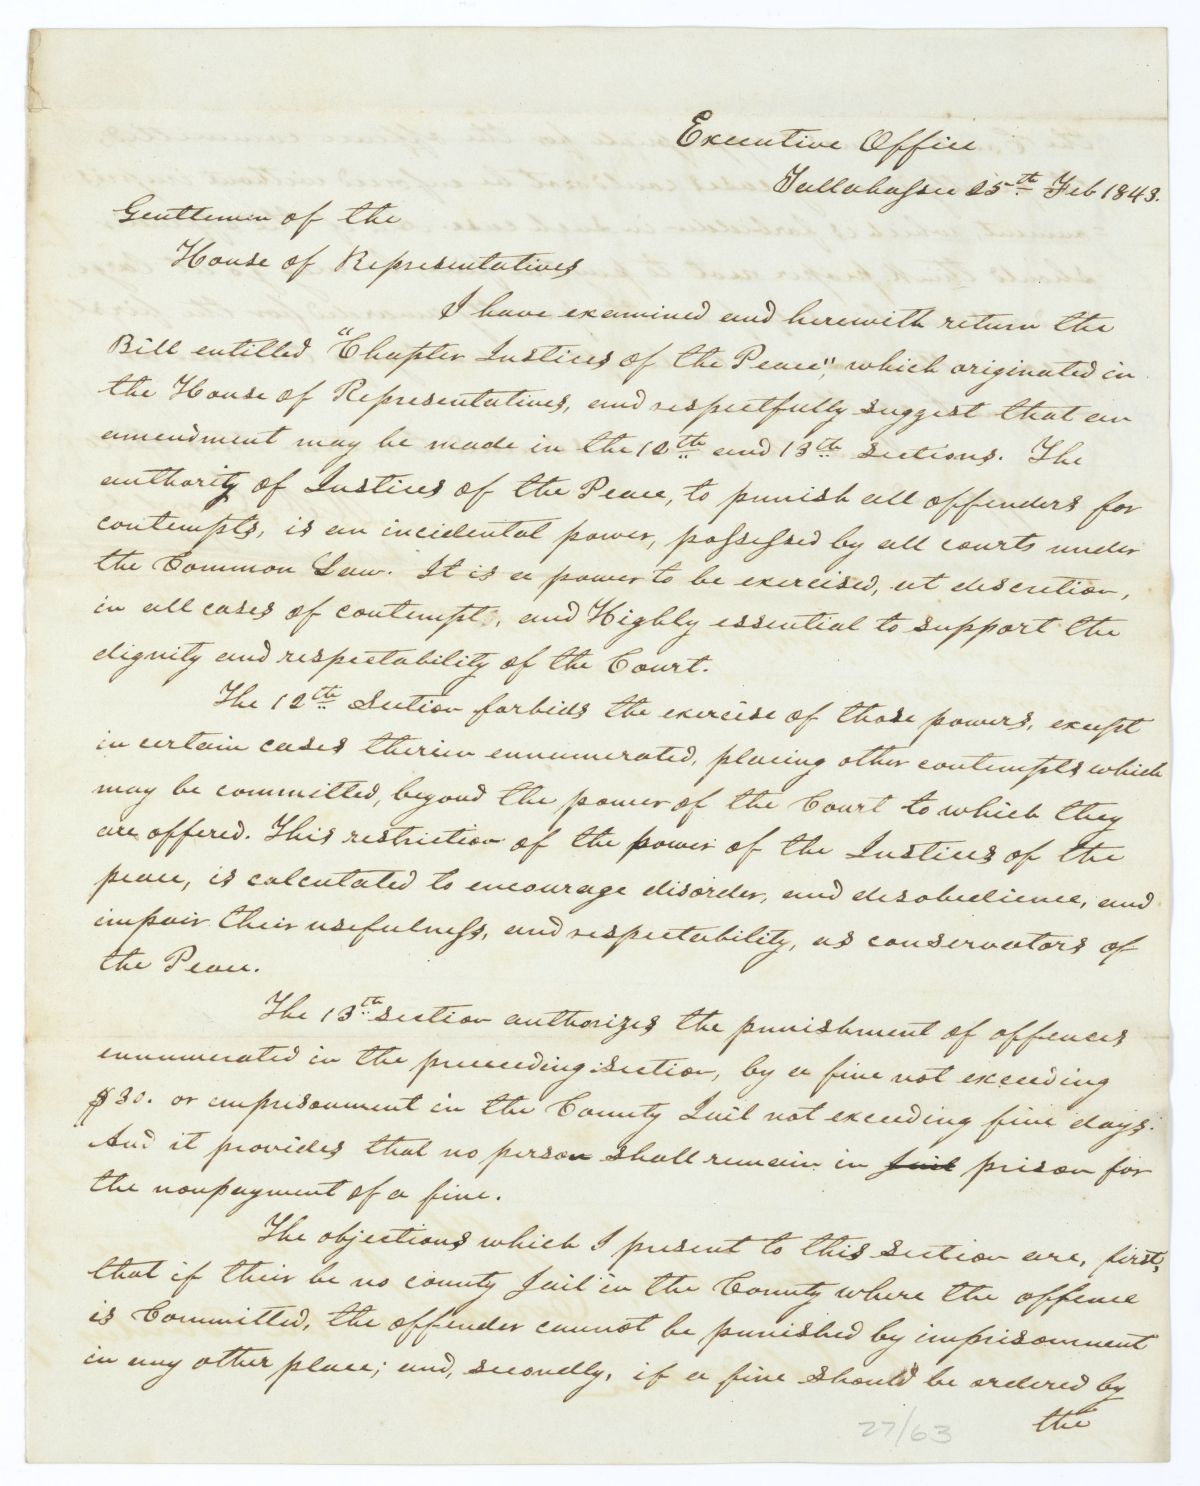 Executive Office
Tallahassee 25th Feb 1843.
Gentlemen of the
House of Representatives
I have examined and herewith return the
Bill entitled "Chapter Justices of the Peace", which originated in
the House of Representatives, and respectfully suggest that an
amendment may be made in the 12th and 13th Sections. The
authority of Justices of the Peace, to punish all offenders for
contempts, is an incidental power, possessed by all courts under
the Common Law. It is a power to be exercised, at discretion,
in all cases of contempt, and Highly essential to support the
dignity and respectability of the Court.
The 12th Section forbids the exercise of those powers, except
in certain cases therein ennumerated, placing other contempts which
may be committed, beyond the power of the Court to which they
are offered. This restriction of the power of the Justices of the
peace, is calculated to encourage disorder, and disobedience, and
impair their usefulness, and respectability, as conservators of
the Peace.
The 13th section authorizes the punishment of offences
ennumerated in the preceeding section, by a fine not exceeding
$30. or imprisonment in the County Jail not exceeding five days.
And it provides that no person shall remain in Jail prison for
the nonpayment of a fine.
The objections which I present to this section are, first,
that if their be no county Jail in the County where the offence
is Committed, the offender cannot be punished by imprisonment
in any other place; and, secondly, if a fine should be ordered by
the
27/63